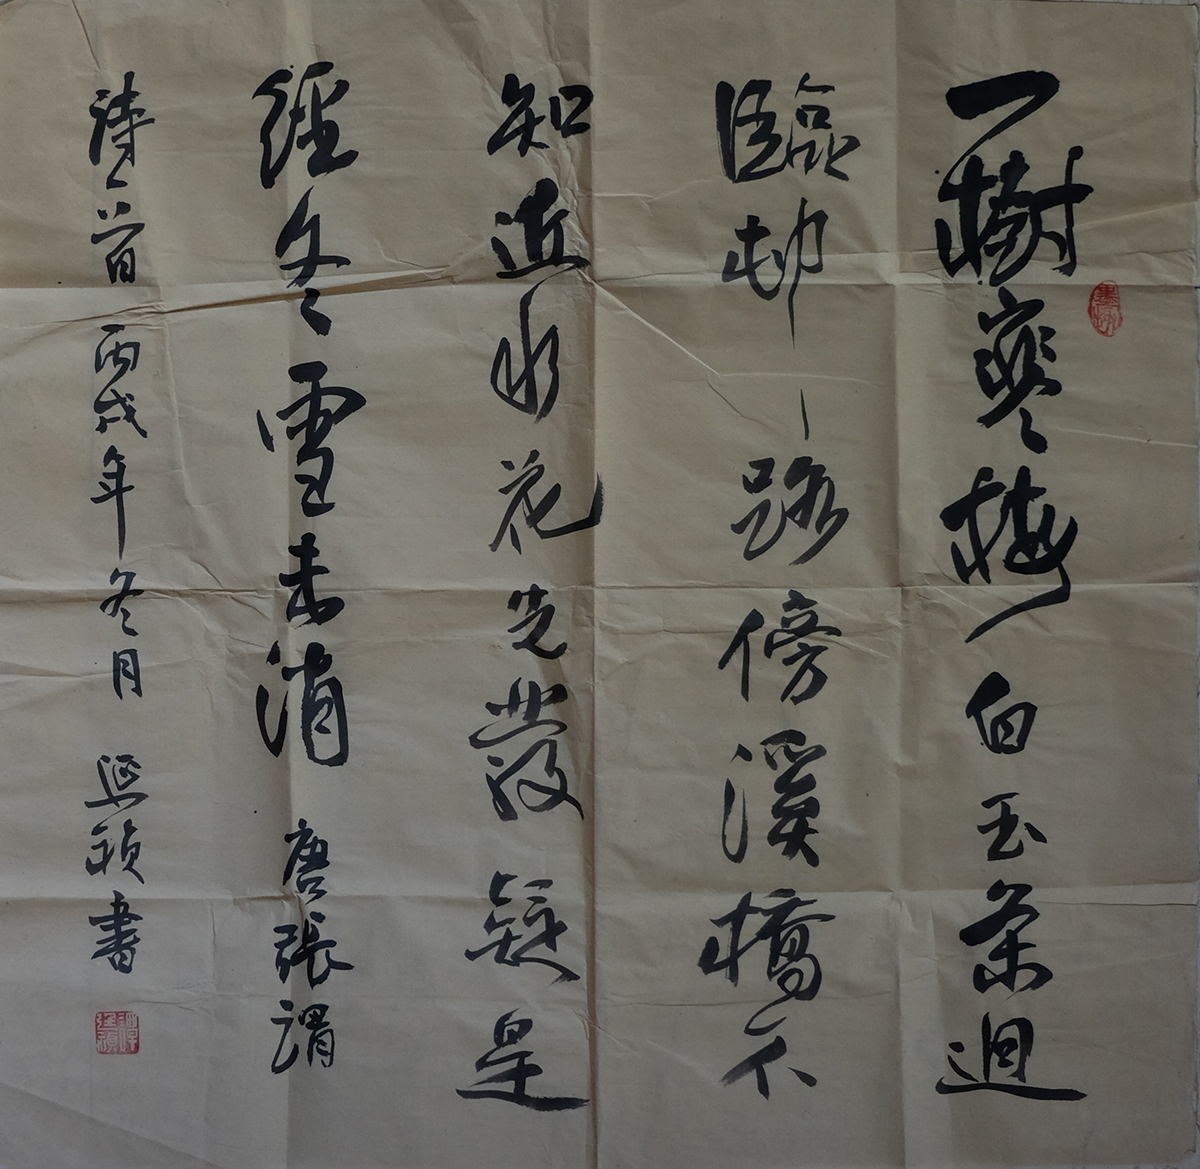 一樹寒梅白玉条迴
臨村路傍溪橋不
知近水花先發疑是
經冬雪未消 唐張謂
詩一首 丙戌年冬月 延禎書